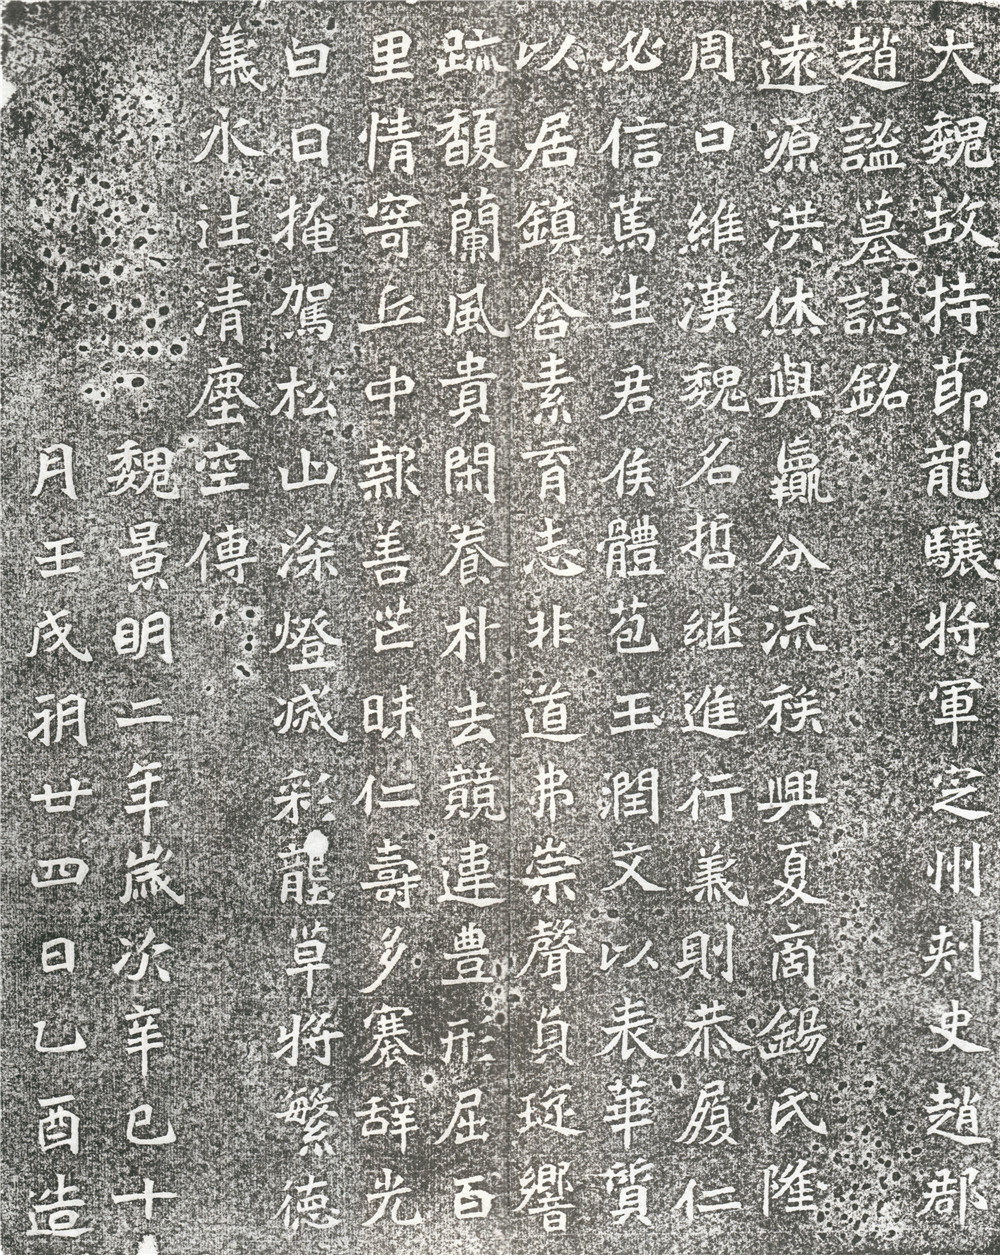 大魏故持節龍驤将軍定州刺史趙郡
趙謐墓誌銘
遠源洪休與嬴分流族興夏商錫氏隆
周曰維漢魏名哲継進行義則恭履仁
必信篤生君侯體苞玉潤文以表華質
以居鎮含素育志非道弗崇聲貞琁響
跡馥蘭風貴閑養朴去競違豊形屈百
里情寄丘中報善芒昧仁壽多褰辞光
白日掩駕松山深燈滅彩壟草将繁德
儀永往清塵空傳
魏景明二年歲次辛巳十
月壬戌朔廿四日乙酉造